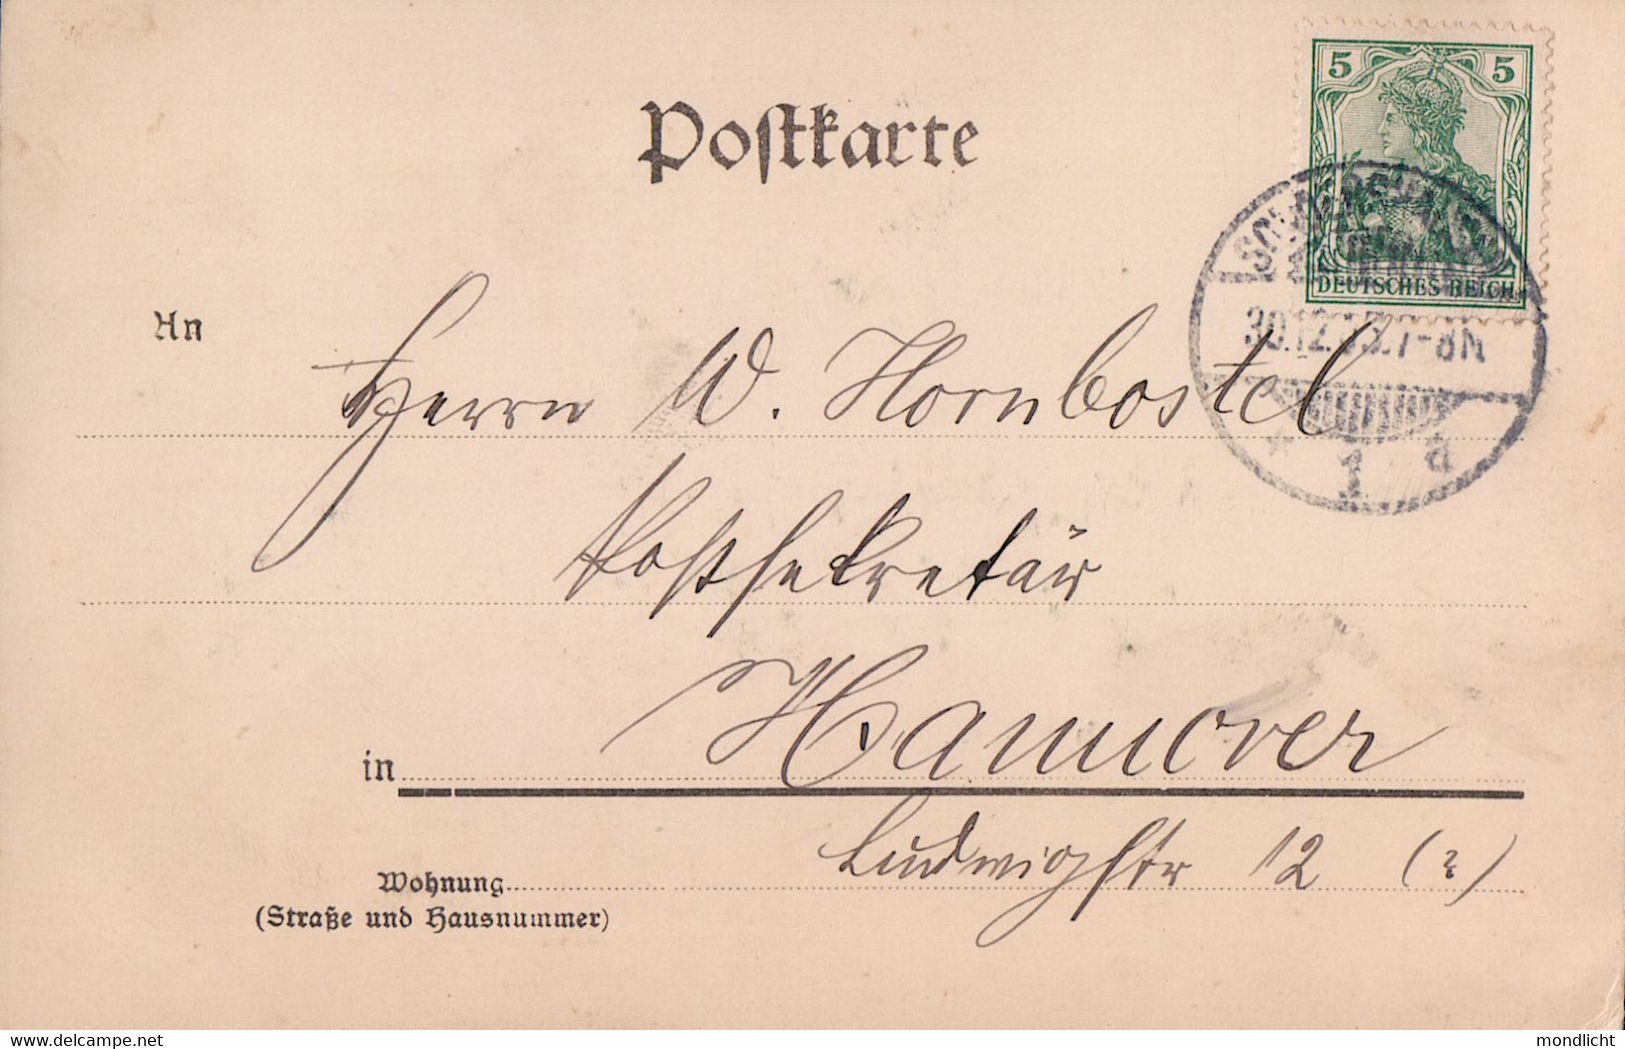 Postkarte
5 5
DEUTSCHES REICH
30.12.03.7-8N
* 1 a
An
Herrn W. Hornbostel
Postsekretär
in Hannover
Ludwigstr 12 (?)
Wohnung
(Straße und Hausnummer)
delcampe.net
mondlicht